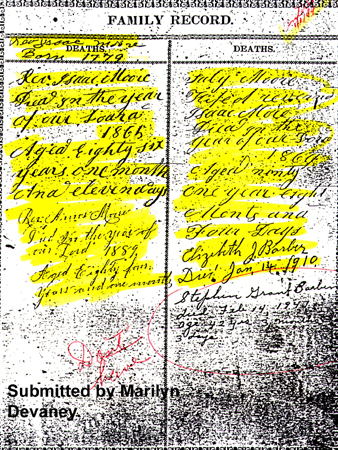 FAMILY RECORD.
DEATHS.
Born 1779
Rev. Isaac Moore
Died in the year
of our Lord
1865
Aged Eighty six
years one month
and eleven days
Rev. Moore
Died in the year of
our Lord 1889
Aged Eighty four
years and one month
DEATHS.
Moore
Isaac Moore
Died in the
year of our
1866
Aged ninty
one year eight
Months and
Four Days
Elizabeth J Barber
Died Jan 14, 1910
Stephen Grant
Died Feb 14
Submitted by Marilyn
Devaney.